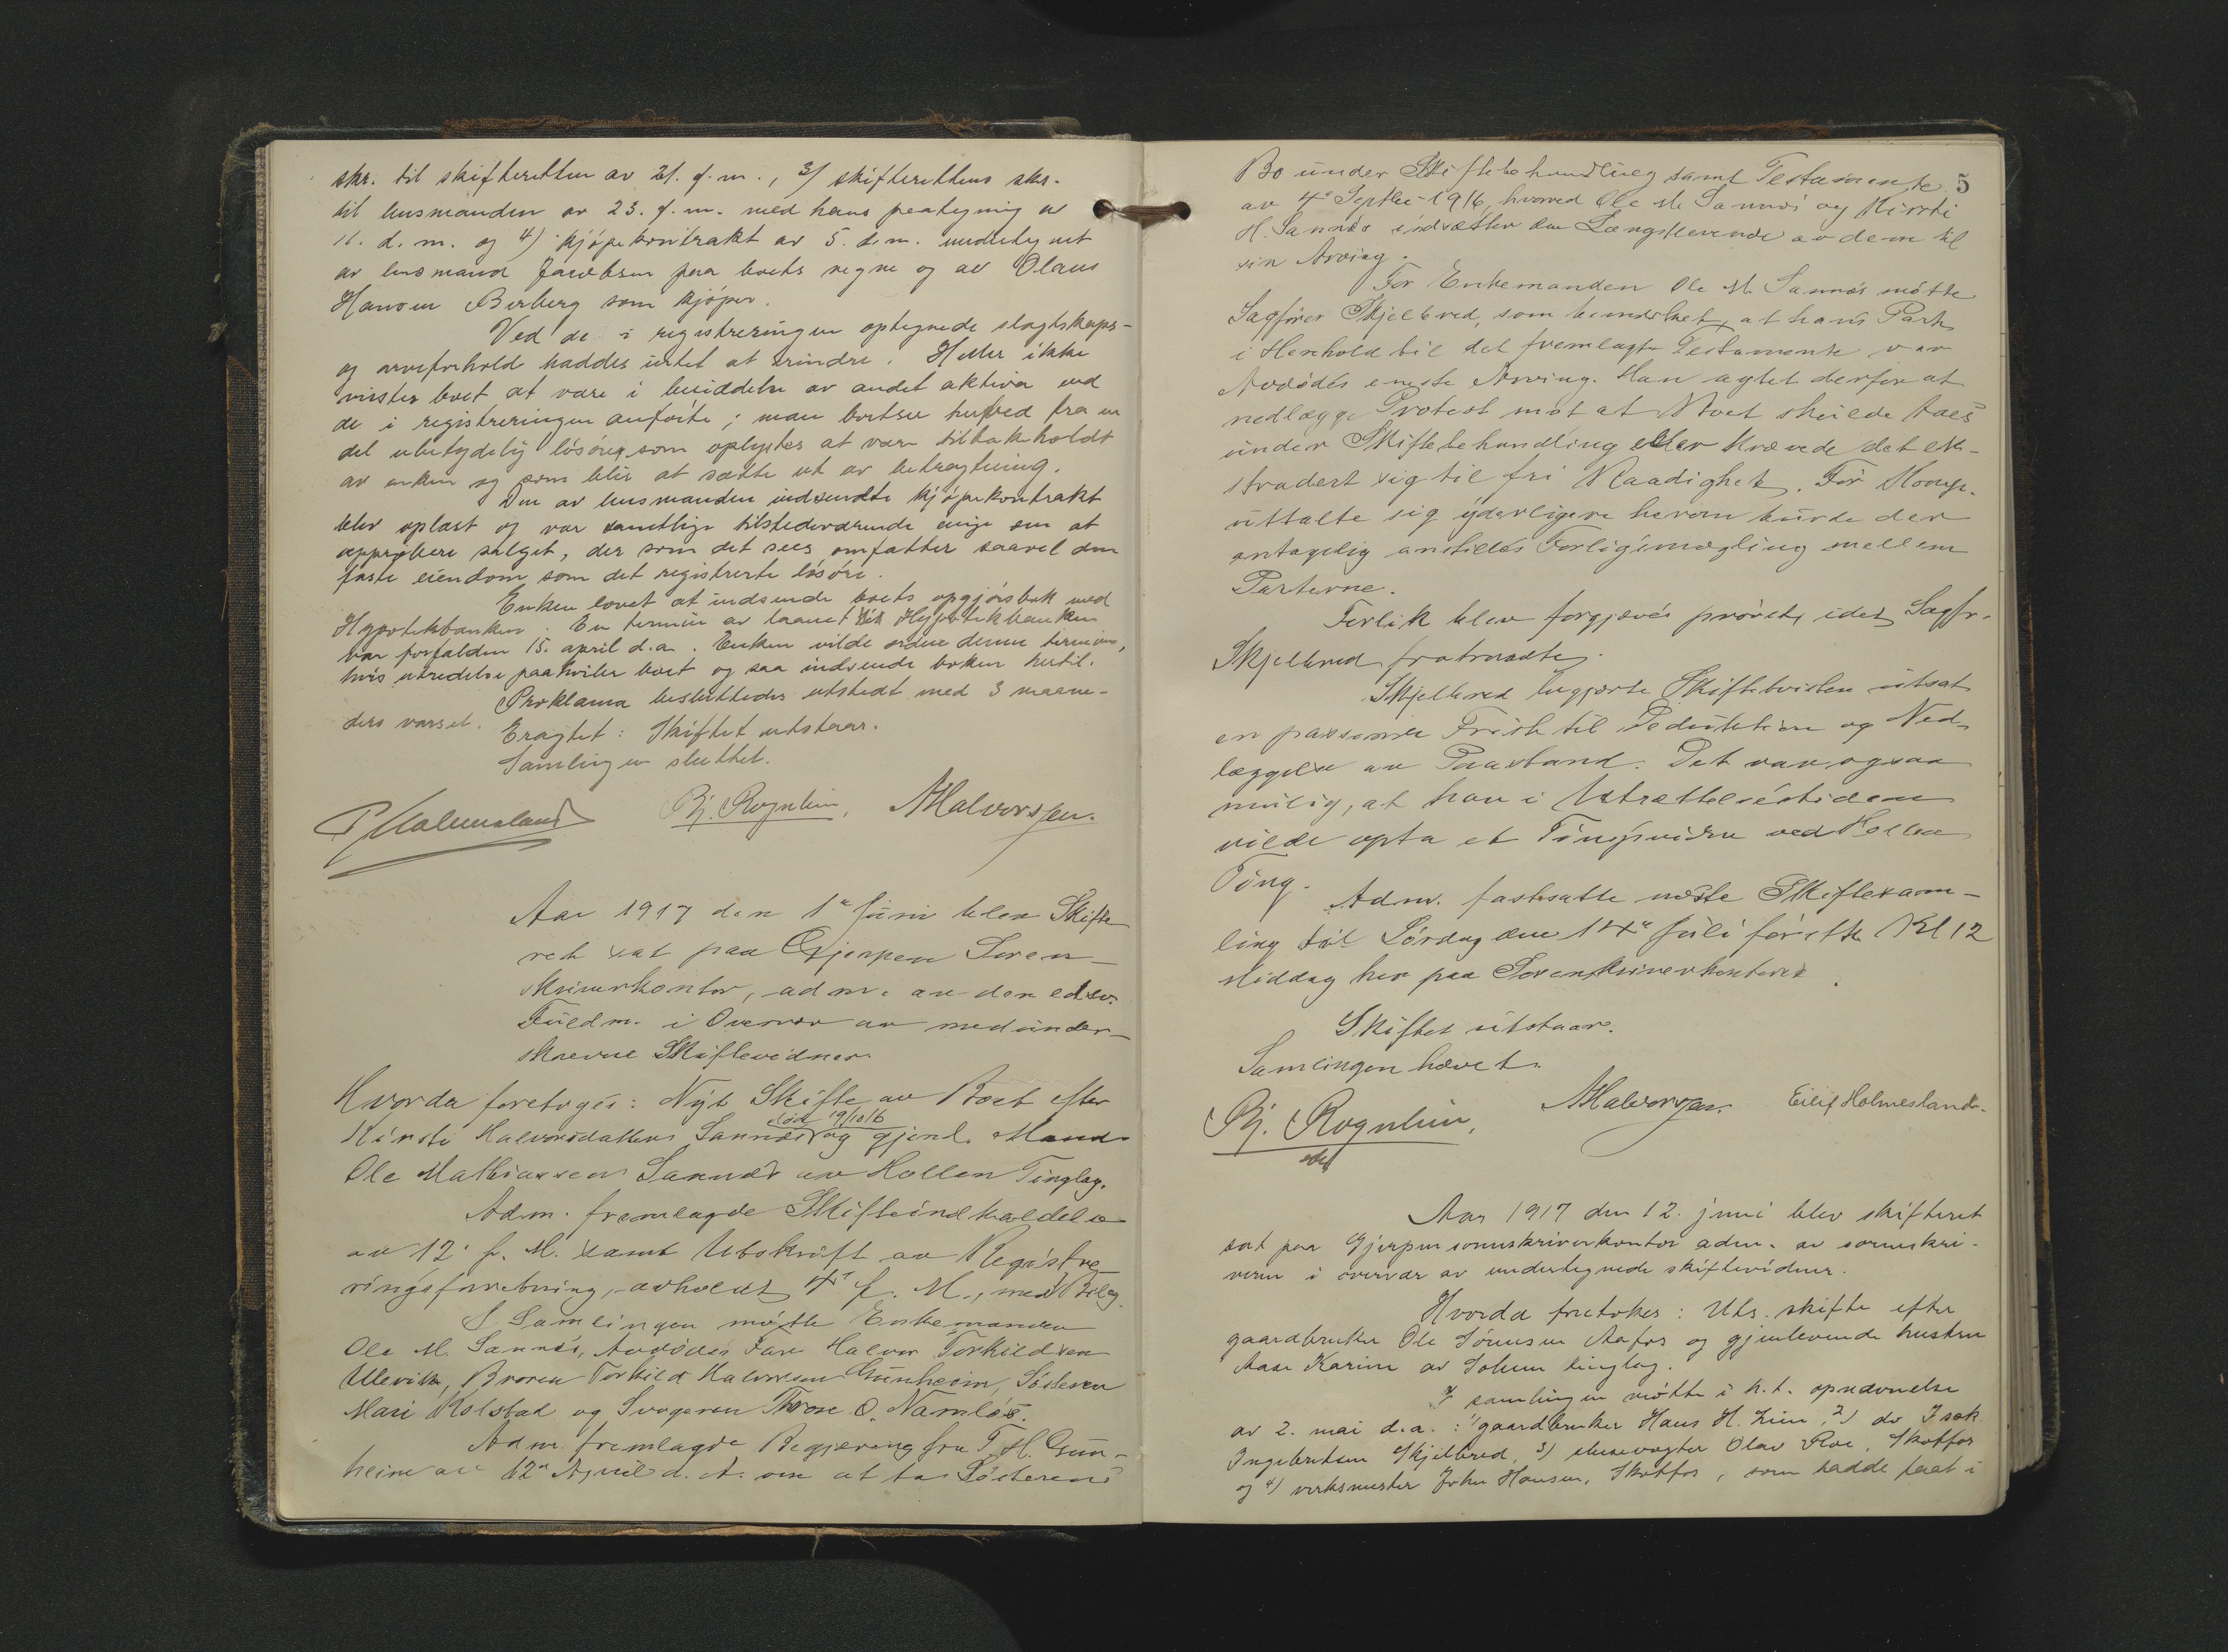 skr. til skifteretten av 21. f. m., 3) skifterettens skr.
til lensmanden av 23. f. m. med hans paategning av
11. d. m. og 4) kjøpekontrakt av 5. d. m. undertegnet
av lensmand Jacobsen paa boets vegne og av Olaus
Hansen Berberg som kjøper.
Ved de i registreringen optegnede slagtskaps-
og arveforhold haddes intet at erindre. Heller ikke
visstes boet at være i besiddelse av andet aktiva end
de i registreringen anførte; man bortser herved fra en
del ubetydelig løsøre, som oplystes at være tilbakeholdt
av enken og som blir at sætte ut av betragtning.
Den av lensmanden indsendte kjøpekontrakt
blev oplæst og var samtlige tilstedeværende enige om at
approbere salget, der som det sees omfatter saavel den
faste eiendom som det registrerte løsøre.
Enken lovet at indsende boets opgjørsbok med
Hypotekbanken. En termin av laanet til Hypotekbanken
var forfalden 15. april d. a. Enken vilde ordne denne termin,
hvis utredelse paahviler boet og saa indsende boken hertil.
Proklama besluttedes utstedt med 3 maane-
ders varsel.
Eragtet: Skiftet utstaar.
Samlingen sluttet.
Holmesland Bj. Rognlien, AHalvorsen.
Aar 1917 den 1ste Juni blev Skifte
ret sat paa Gjerpen Soren-
skriverkontor, adm. av den edsv.
Fuldm. i Overvær av medunder-
skrevne Skiftevidner.
Hvorda foretoges: Nyt Skifte av Boet efter
død 19/10 16
Kirsti Halvorsdatter Sannæs og gjenl. Mand
Ole Mathiassen Sannæs av Hollen Tinglag.
Adm. fremlagde Skifteindkaldelse
av 12. f. M. samt Utskrift av Registre-
ringsforretning, avholdt 4. f. M., med Bilag.
I Samlingen møtte Enkemanden
Ole M. Sannæs, Avdødes Far Halvor Torkildsen
Ullevik, Broren Torkild Halvorsen Gunheim, Søsteren
Mari Kolstad og Svogeren Thrond O. Namløs.
Adm. fremlagde Begjæring fra T. H. Gun-
heim av 12te April d. A. om at ta Søsterens
5
Bo under Skiftebehandling samt Testamente
av 4de Septbr 1916, hvorved Ole M. Sannæs og Kirsti
H. Sannæs indsætter den Længstlevende av dem til
sin Arving.
For Enkemanden Ole M. Sannæs møtte
Sagfører Skjelbred, som bemerket, at hans Part
i Henhold til det fremlagte Testamente var
Avdødes eneste Arving. Han agtet derfor at
nedlægge Protest mot at Boet skulde taes
under Skiftebehandling eller krævede det ek-
stradert sig til fri Raadighet. Før Mange
uttalte sig yderligere herom burde der
antagelig anstilles Forligsmægling mellem
Parterne.
Forlik blev forgjæves prøvet, idet Sagfr.
Skjelbred fratraadte.
Skjelbred begjærte Skiftetvisten utsat
en passende Frist til Deduktion og Ned-
læggelse av Paastand. Det var ogsaa
mulig, at han i Utsættelsestiden
vilde opta et Tingsvidne ved Hollen
Ting.
Adm. fastsatte næste Skiftesam-
ling til Lørdag den 14de Juli førstk. Kl 12
Middag her paa Sorenskriverkontoret.
Skiftet utstaar.
Samlingen hævet.
Bj. Rognlien, AHalvorsen. Eilif Holmesland.
Aar 1917 den 12. juni blev skifteret
sat paa Gjerpen sorenskriverkontor adm. av sorenskri-
veren i overvær av undertegnede skiftevidner.
Hvorda foretokes: Uts. skifte efter
gaardbruker Ole Sørensen Aafos og gjenlevende hustru
Aase Karine av Solum tinglag.
I samlingen møtte i h. t. opnævnelse
av 2. mai d. a.: 1) gaardbruker Hans H. Lien, 2) do Isak
Ingebretsen Skjelbred, 3) slusevogter Olav Roe, Skotfos
og 4) verksmester John Hansen, Skotfos, som hadde faat i